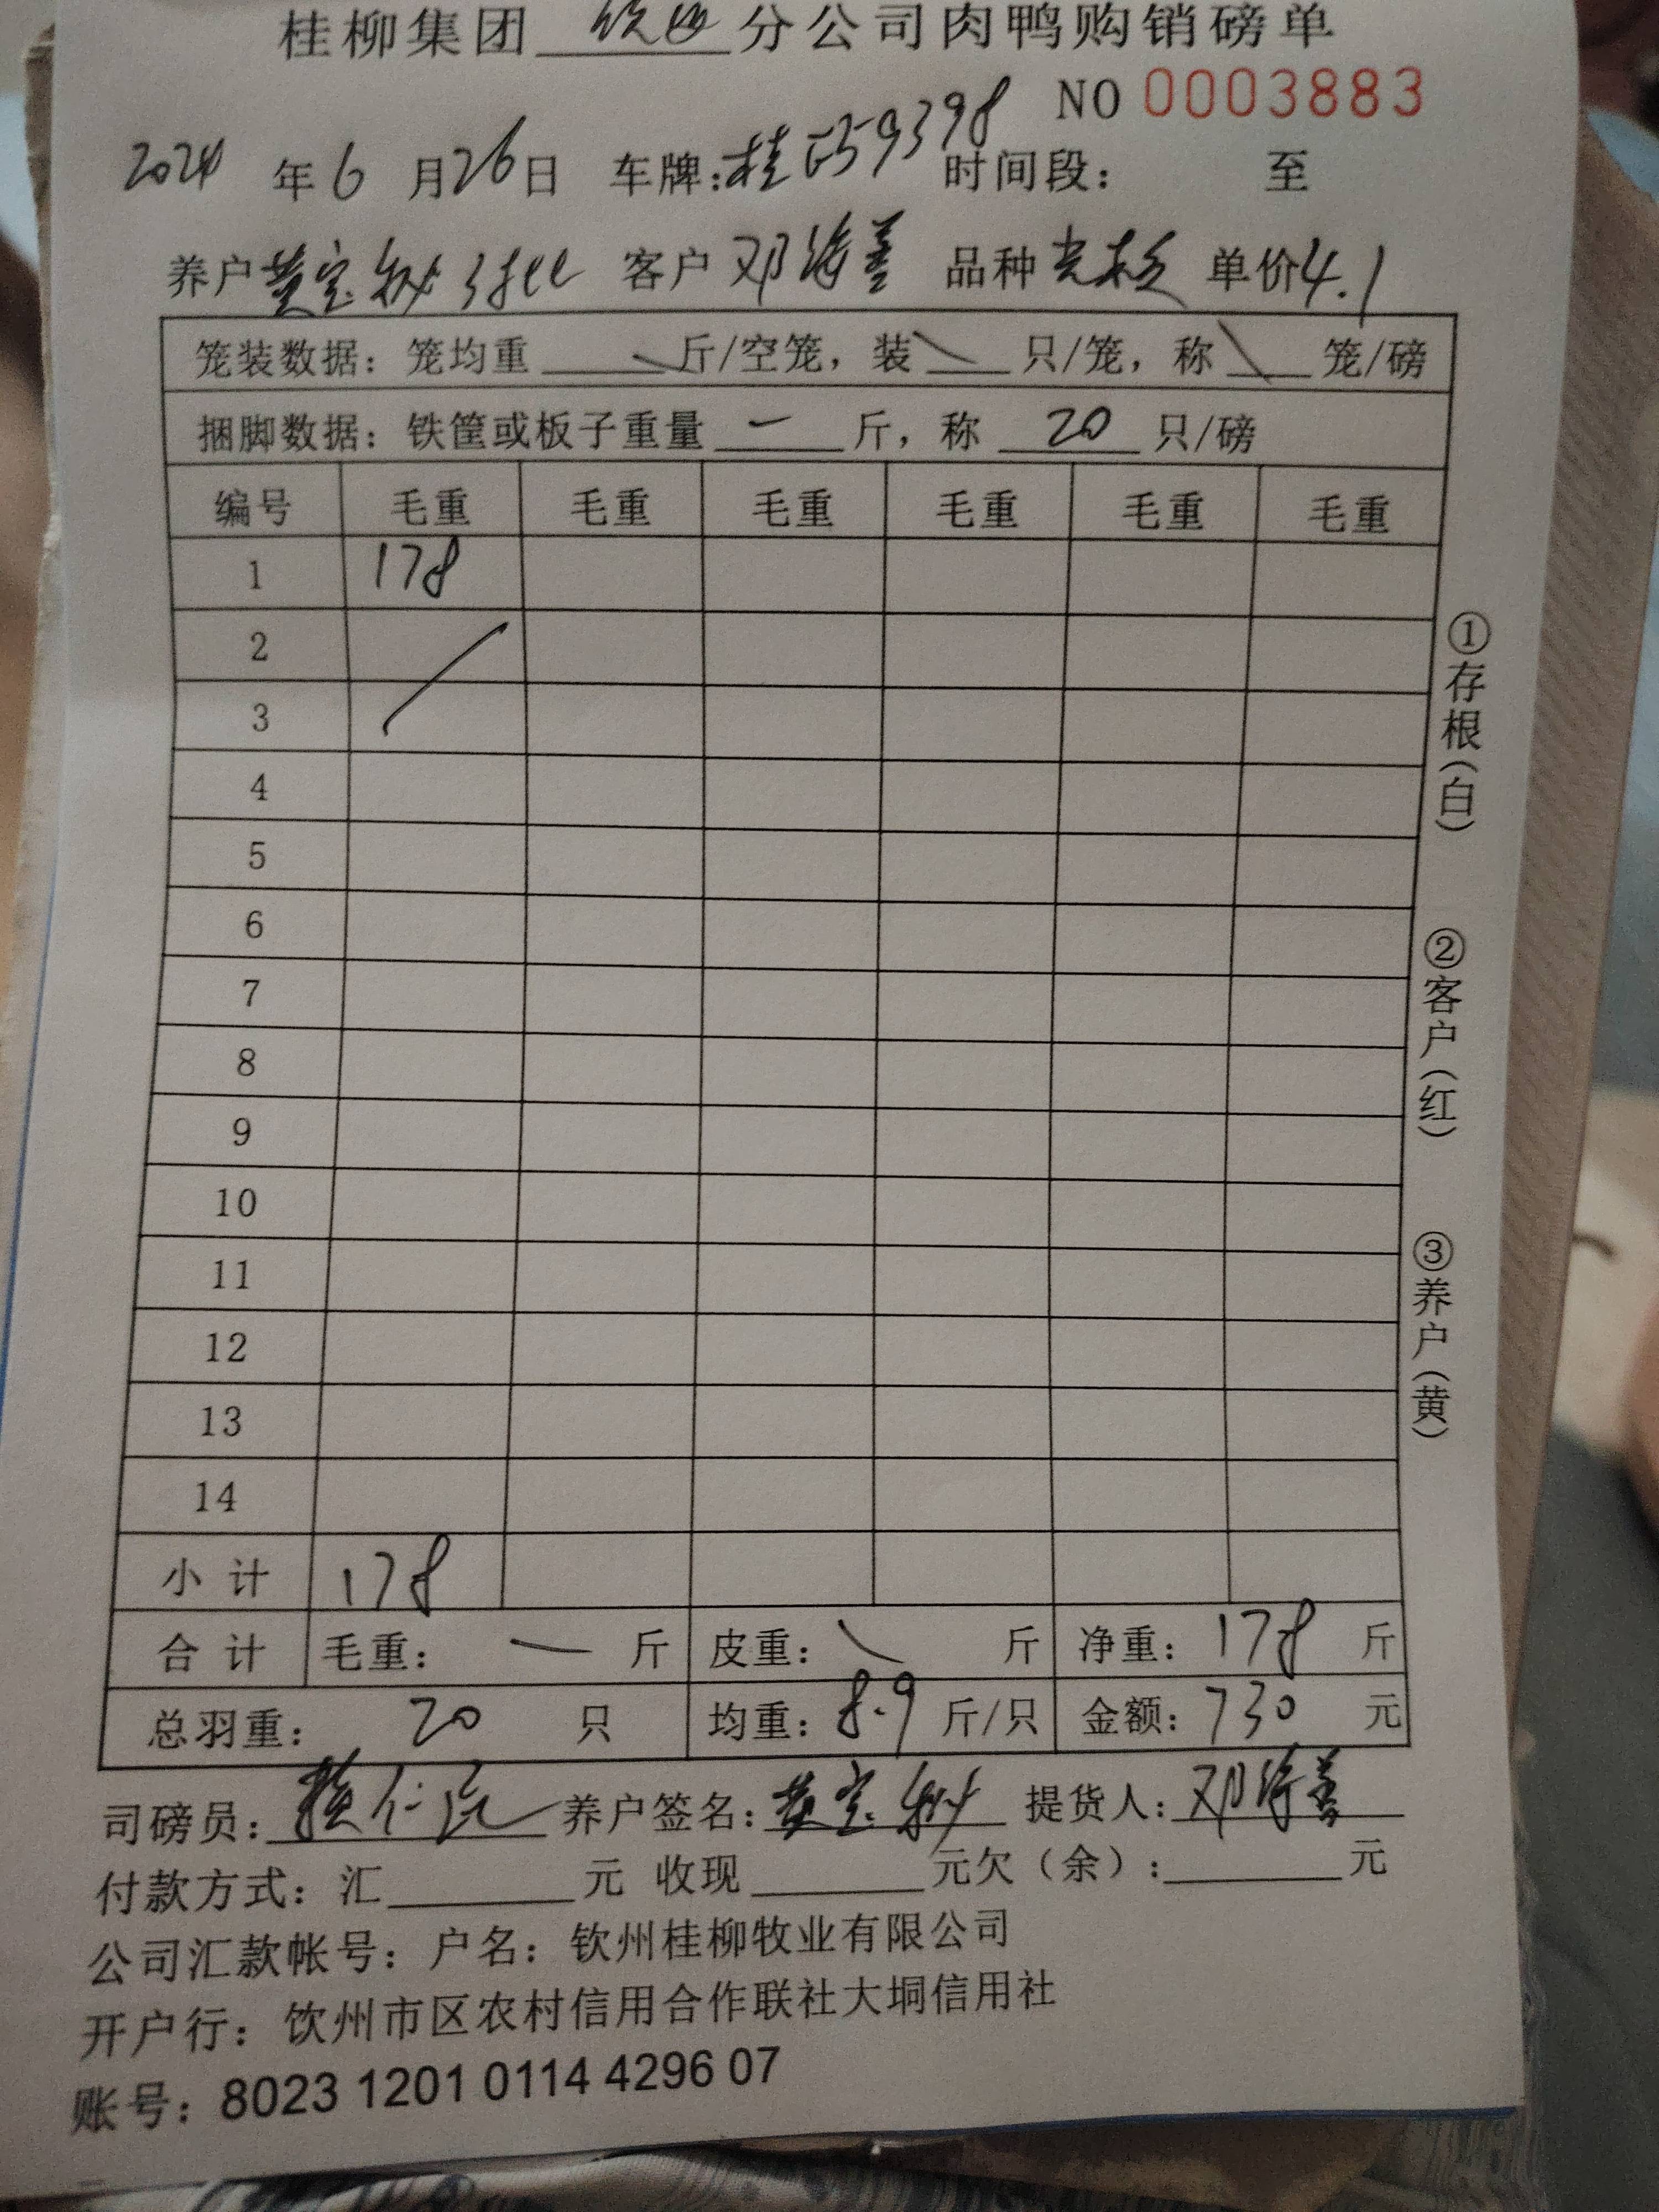 桂柳集团 分公司肉鸭购销磅单
NO 0003883
2024 年 6 月 26 日 车牌: 桂 59398 时间段: 至
养户 黄宝 客户 邓海善 品种 单价 4.1
笼装数据: 笼均重 斤/空笼, 装 只/笼, 称 笼/磅
捆脚数据: 铁筐或板子重量 一 斤, 称 20 只/磅
编号 毛重 毛重 毛重 毛重 毛重 毛重
1 178
2
3
4
5
6
7
8
9
10
11
12
13
14
小计 178
合计 毛重: 一 斤 皮重: 斤 净重: 178 斤
总羽重: 20 只 均重: 8.9 斤/只 金额: 730 元
司磅员: 养户签名: 黄宝 提货人: 邓海善
付款方式: 汇 元 收现 元欠(余): 元
公司汇款帐号: 户名: 钦州桂柳牧业有限公司
开户行: 饮州市区农村信用合作联社大垌信用社
账号: 8023 1201 0114 4296 07
①存根(白)
②客户(红)
③养户(黄)